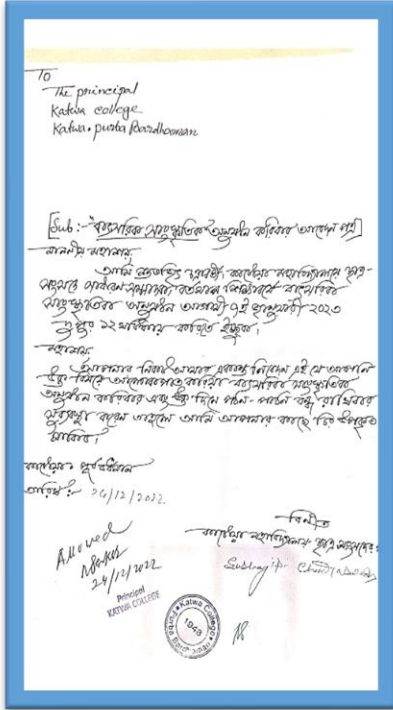 To
The principal
Katwa college
Katwa • purba Bardhaman
[Sub :- "বাৎসরিক সাংস্কৃতিক অনুষ্ঠান করিবার আবেদন পত্র]
মাননীয় মহাশয়,
আমি শুভজিৎ চ্যাটার্জী, কাটোয়া মহাবিদ্যালয়ে ছাত্র-
সংসদের সাধারণ সম্পাদক বর্তমান শিক্ষাবর্ষে বাৎসরিক
সাংস্কৃতিক অনুষ্ঠান আগামী জানুয়ারী ২০২৩
দুপুর ১২ ঘটিকায় করিতে ইচ্ছুক।
মহাশয়,
আপনার নিকট আমার একান্ত নিবেদন এই যে আপনি
উক্ত বিষয়ে আলোকপাত করিয়া বাৎসরিক সাংস্কৃতিক
অনুষ্ঠান করিবার এবং দিনে পঠন-পাঠন বন্ধ রাখিবার
সুব্যবস্থা করেন তাহলে আমি আপনার কাছে চির উপকৃত
থাকিব।
কাটোয়া, পূর্ব বর্ধমান
তারিখ :- 24/12/2022
বিনীত
কাটোয়া মহাবিদ্যালয় ছাত্র সংসদের
Allowed
24/12/2022
Principal
KATWA COLLEGE
Katwa College
1948